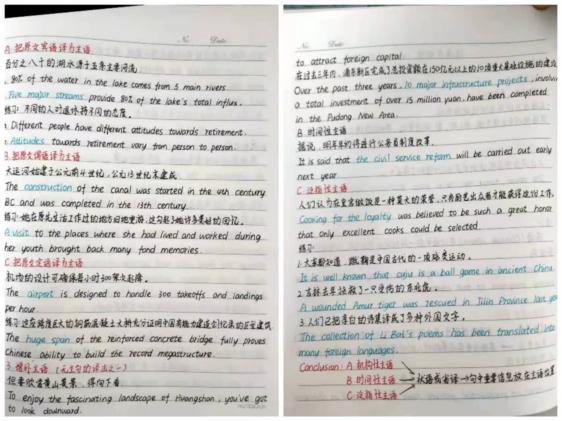 No. Date
A 把原文宾语译为主语
百分之八十的湖水源于五条主要河流
80% of the water in the lake comes from 5 main rivers
Five major streams provide 80% of the lake's total influx.
练习·不同的人对退休持不同的态度。
Different people have different attitudes towards retirement.
Attitudes towards retirement vary from person to person.
B 把原文谓语译为主语
大运河始建于公元前4世纪,公元13世纪末建成
The construction of the canal was started in the 4th century
BC and was completed in the 13th century.
A visit to the places where she had lived and worked during
her youth brought back many fond memories.
C 把原文定语译为主语
机场的设计可确保每小时300架次起降。
The airport is designed to handle 300 takeoffs and landings
per hour.
The huge span of the reinforced concrete bridge fully proves
Chinese ability to build the record megastructure.
3. 增补主语
但要欣赏黄山美景,得向下看
To enjoy the fascinating landscape of Huangshan, you've got
to look downward.
No. Date
to attract foreign capital.
Over the past three years, 10 major infrastructure projects, involving
a total investment of over 15 million yuan, have been completed
in the Pudong New Area.
B 时间性主语
据说,明年年初将进行公务员制度改革。
It is said that the civil service reform will be carried out early
next year
C 泛指性主语
Cooking for the loyalty was believed to be such a great honor
that only excellent cooks could be selected.
练习
1. 大家都知道,蹴鞠是中国古代的一项球类运动。
It is well known that cuju is a ball game in ancient China.
2. 吉林去年拯救了一只受伤的东北虎。
A wounded Amur tiger was rescued in Jilin Province last year
3. 人们已把李白的诗集译成了多种外国文字。
The collection of Li Bai's poems has been translated into
many foreign languages.
Conclusion: A 机构性主语
B 时间性主语
C 泛指性主语